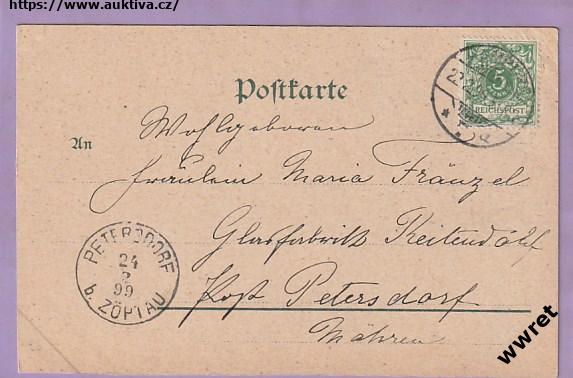 https://www.auktiva.cz/
Postkarte
5
REICHSPOST
An
Wohlgeboren
Fräulein Maria Fränzel
Glasfabrik Reitendorf
Post Petersdorf
Mähren
PETERSDORF
24
2
99
b. ZÖPTAU
wwret